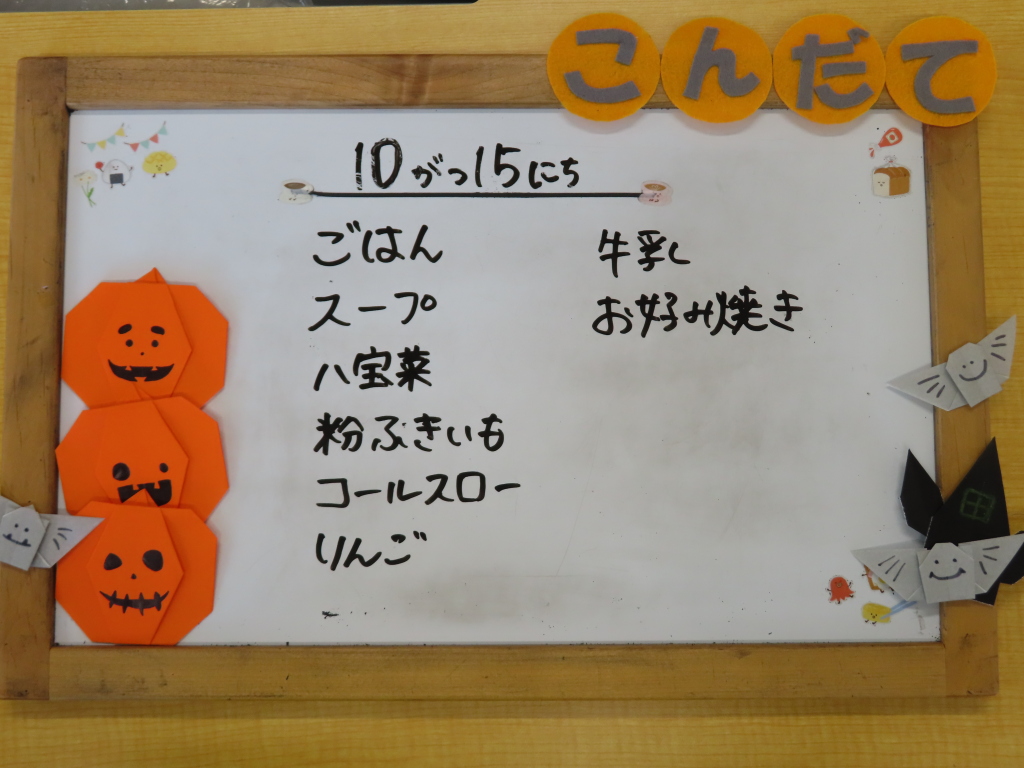 こんだて
10がつ15にち
ごはん
スープ
八宝菜
粉ふきいも
コールスロー
りんご
牛乳
お好み焼き